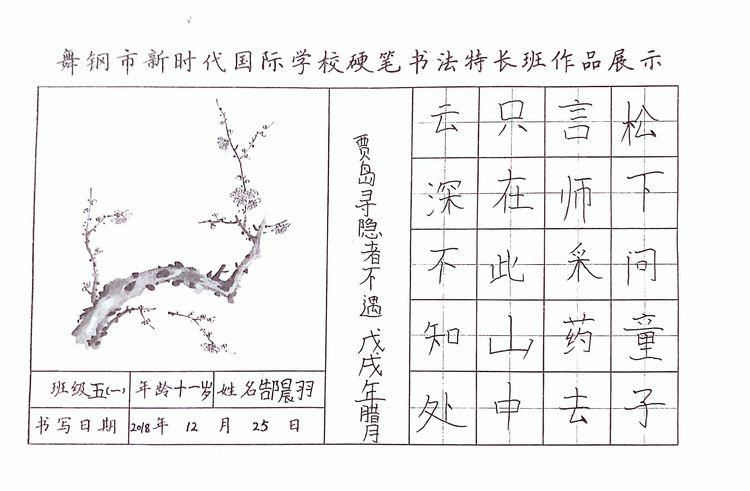 舞钢市新时代国际学校硬笔书法特长班作品展示
松下问童子
言师采药去
只在此山中
云深不知处
贾岛寻隐者不遇 戊戌年腊月
班级五(一) 年龄十一岁 姓名郜晨羽
书写日期 2018年 12 月 25 日